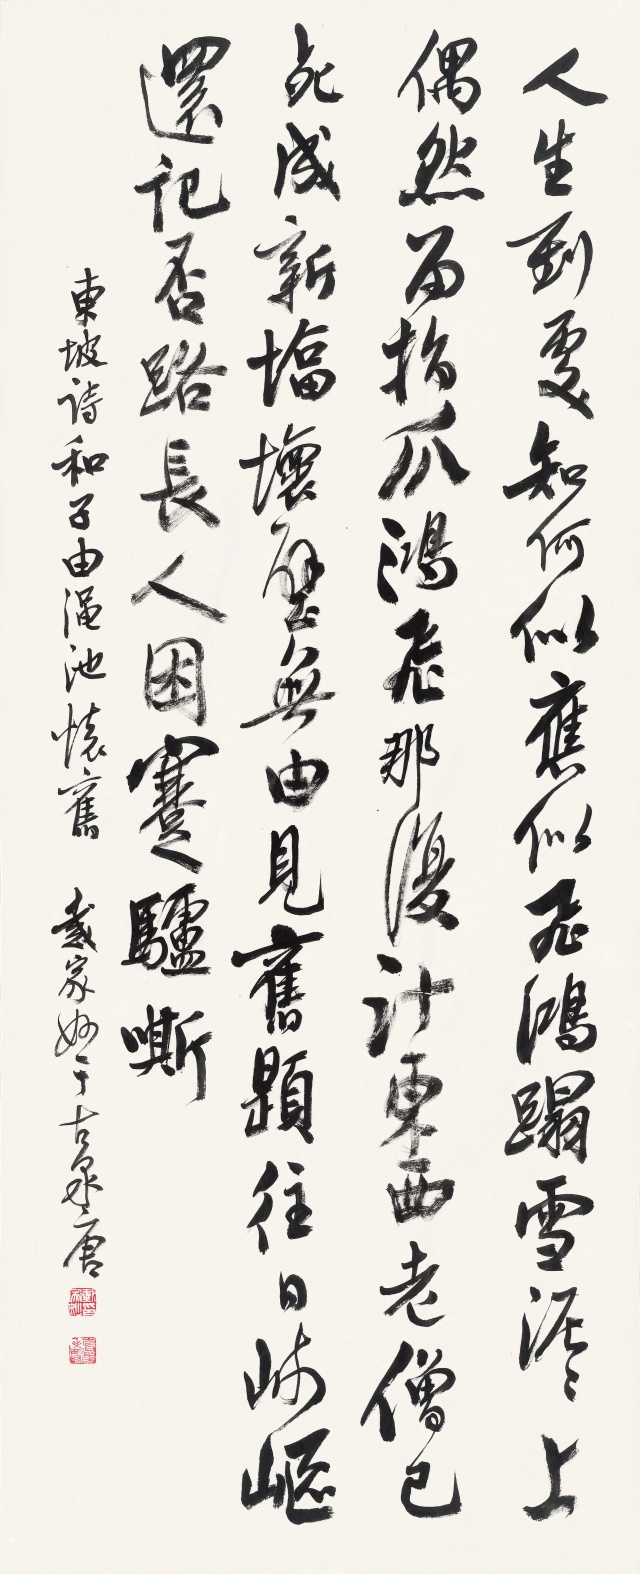 人生到處知何似應似飛鴻蹋雪泥〻上
偶然留指爪鴻飛那復計東西老僧已
死成新塔壞壁無由見舊題往日崎嶇
還記否路長人困蹇驢嘶
東坡詩和子由澠池懷舊 戴家妙于古泉唐